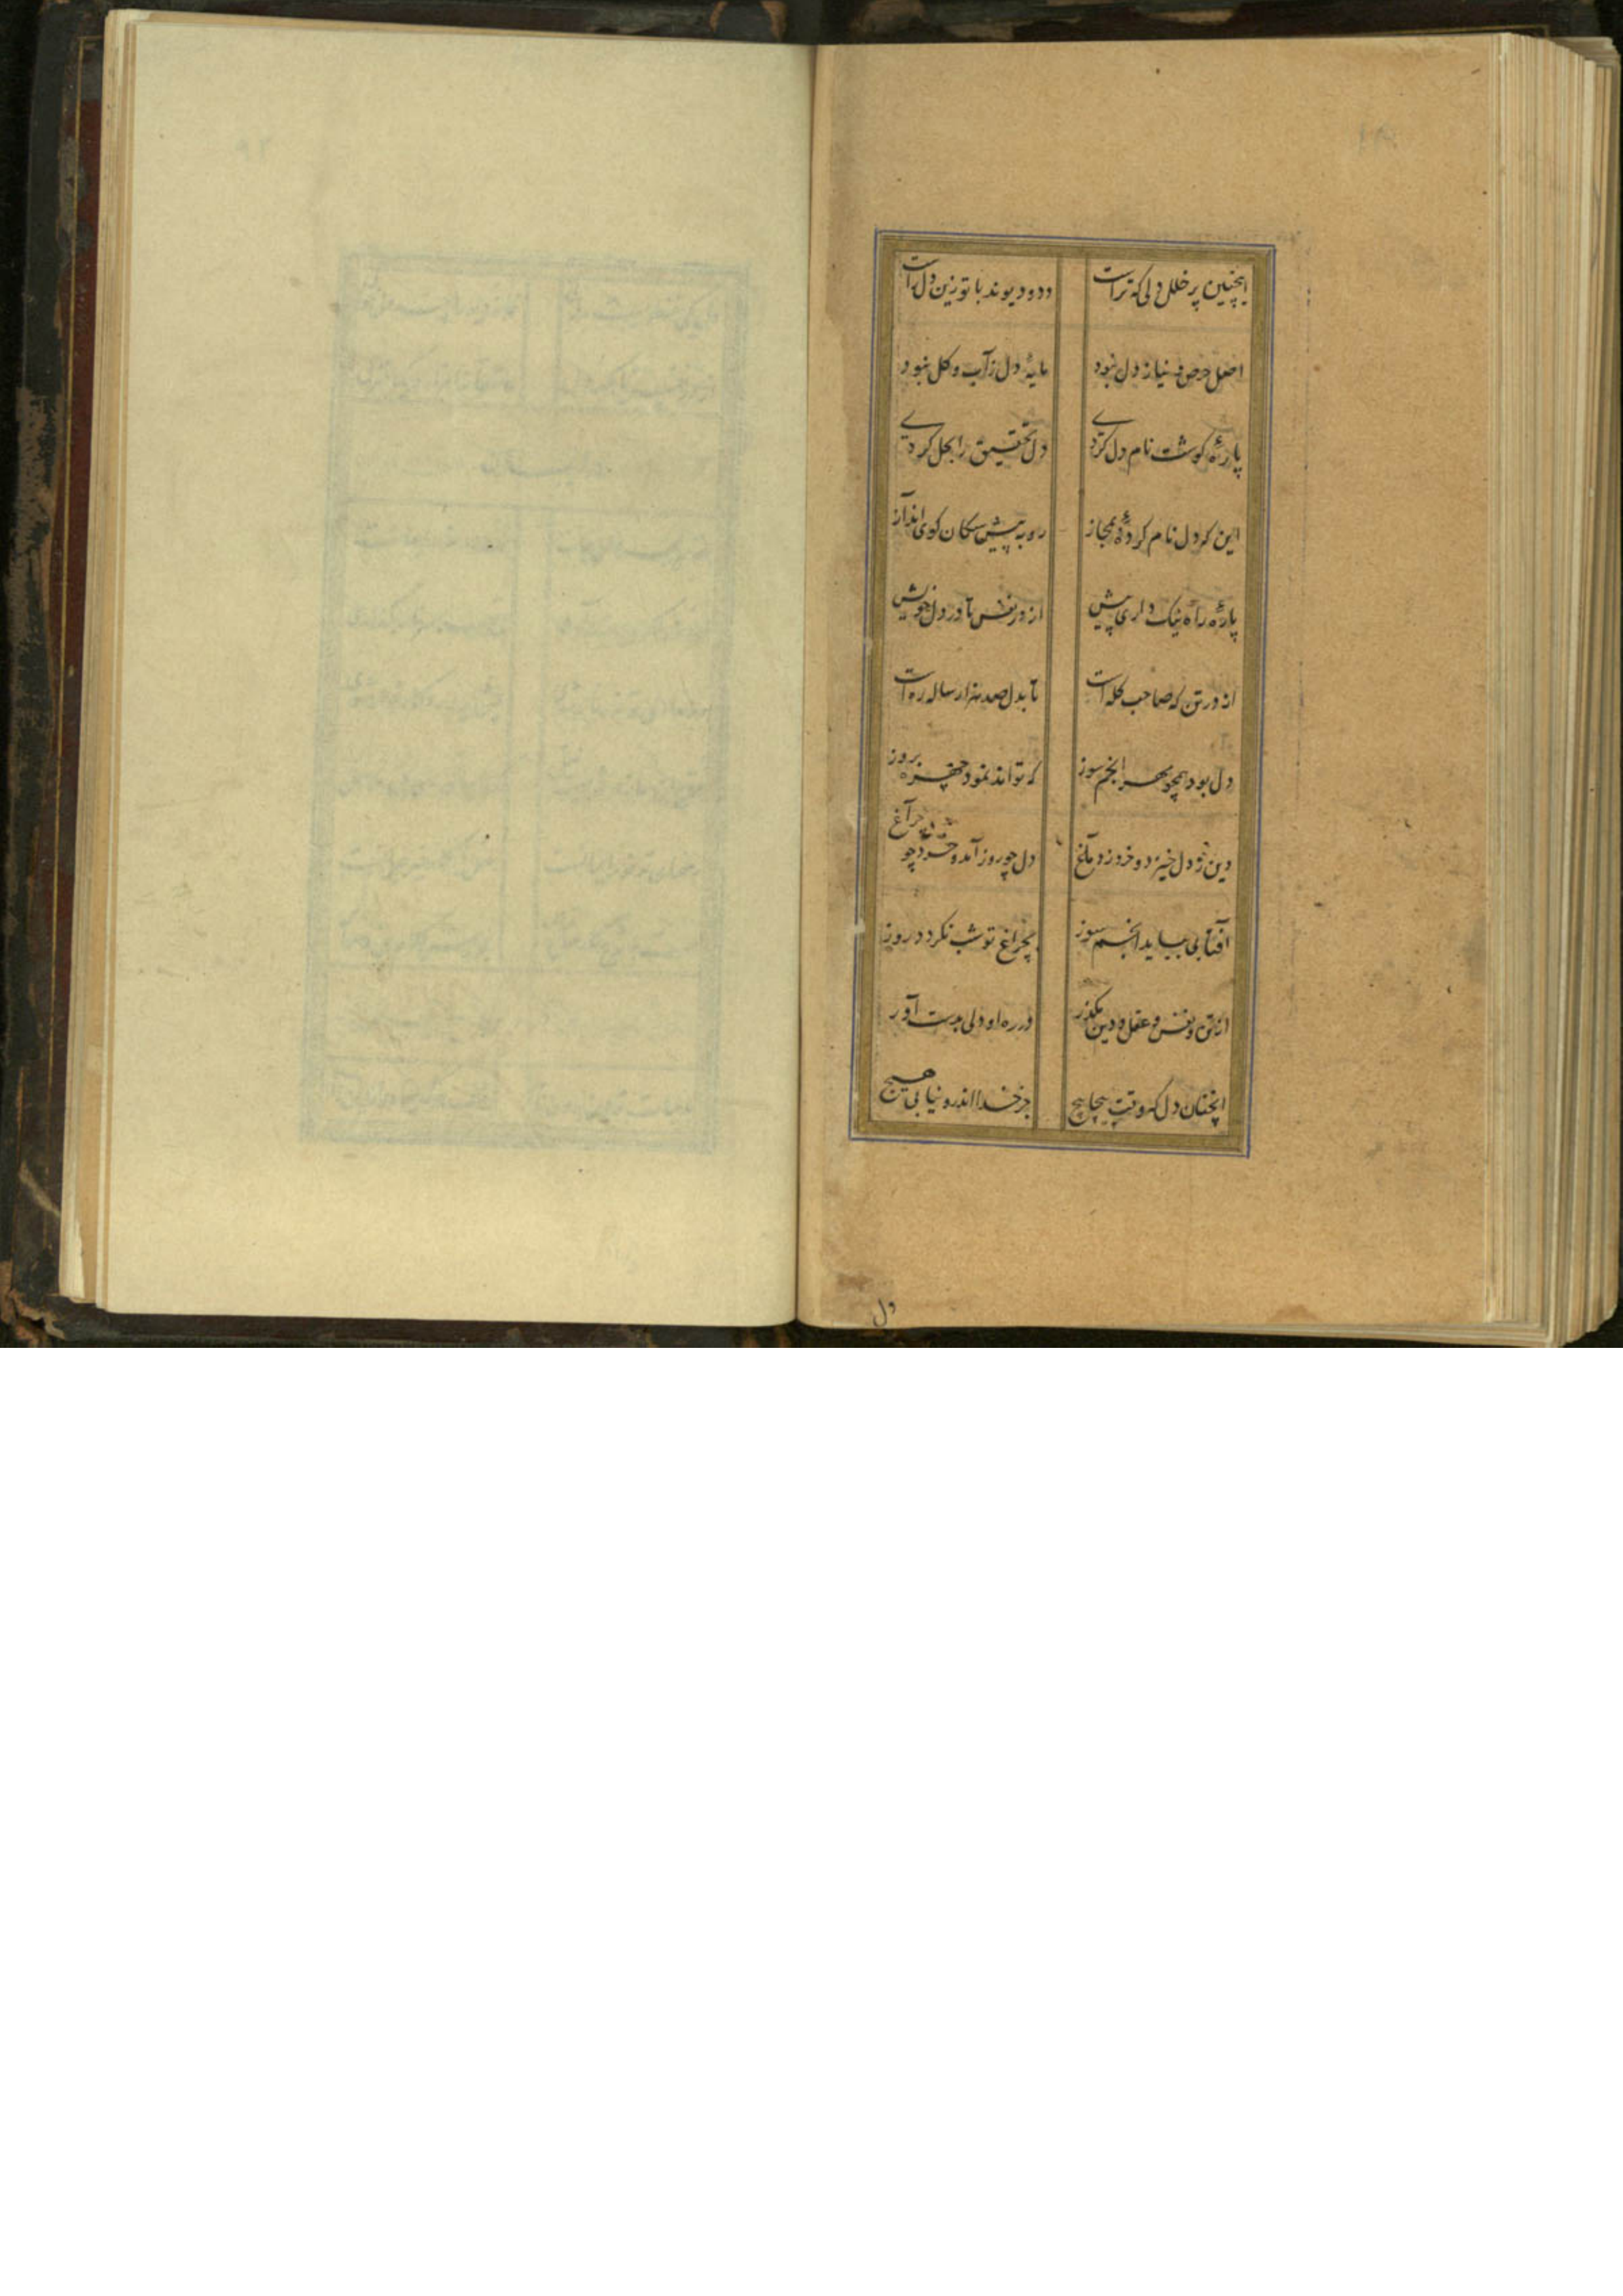 اینچنین پر خلل دلی که تراست
دد و دیوند با تو زین دل راست
اصل حرص و نیاز دل نبود
مایهٔ دل ز آب و کل نبود
پارهٔ کوشت نام دل کردی
دل تحقیق را بحل کردی
این که دل نام کردهٔ بمجاز
رو به پیش سکان کوی انداز
پارهٔ راه نیک داری پیش
از در نفس تا در دل خویش
از در تن که صاحب کله است
تا بدل صد هزار ساله ره است
دل بود همچو مهر انجم سوز
که تواند نمود چهره بروز
دین ز دل خیزد و خرد ز دماغ
دل چو روز آمد و خرد چو چراغ
آفتابی بباید انجم سوز
بچراغ تو شب نکردد روز
از تن و نفس و عقل و دین بکذر
در ره او دلی بدست آور
انچنان دل که وقت پیچاپیچ
جز خدا اندرو نیابی هیچ
دل